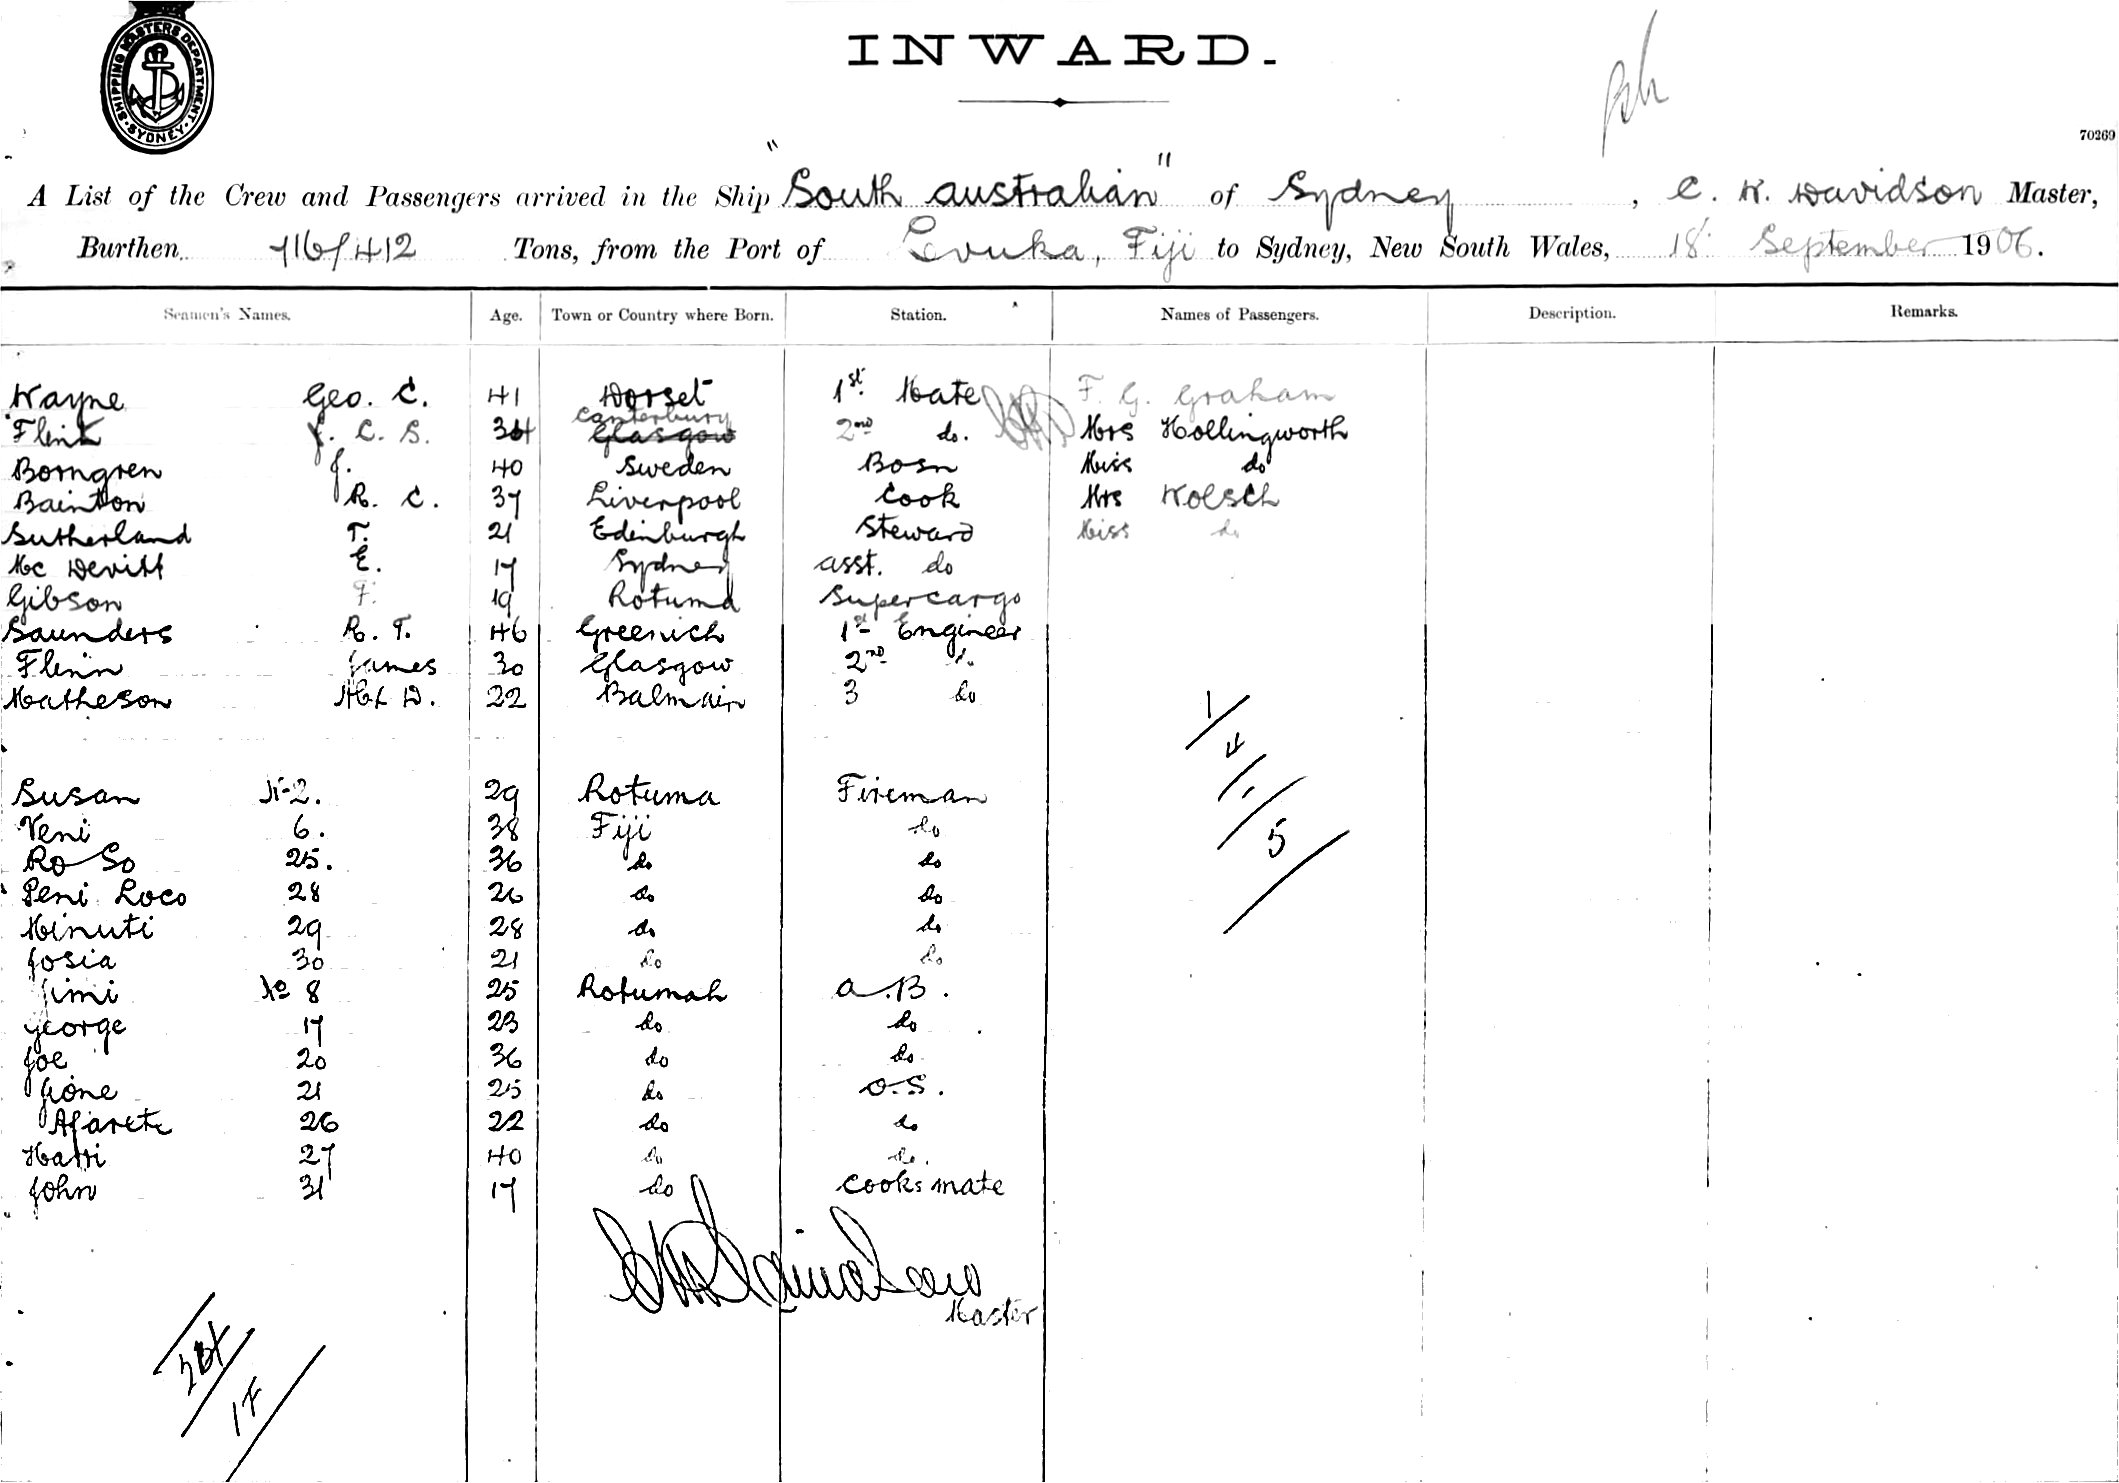 SHIPPING MASTERS DEPARTMENT
SYDNEY
INWARD.
70269
A List of the Crew and Passengers arrived in the Ship "South Australian" of Sydney, C. W. Davidson Master,
Burthen 716/412 Tons, from the Port of Levuka, Fiji to Sydney, New South Wales, 18 September 1906.
Seamen's Names. Age. Town or Country where Born. Station. Names of Passengers. Description. Remarks.
Wayne Geo. C. 41 Dorset 1st Mate F. G. Graham
Canterbury
Flint J. C. S. 34 Glasgow 2nd do. Mrs Hollingworth
Borngren J. 40 Sweden Bosn Miss do
Bainton R. C. 37 Liverpool Cook Mrs Wolsch
Sutherland T. 21 Edinburgh Steward Miss do
Mc Devitt E. 17 Sydney asst. do
Gibson F. 19 Rotuma Supercargo
Saunders R. T. 46 Greenich 1st Engineer
Flinn James 30 Glasgow 2nd do
Matheson D. 22 Balmain 3 do
Susan No 2. 29 Rotuma Fireman
Veni 6. 38 Fiji do
Ro So 25. 36 do do
Peni Loco 28 26 do do
Minuti 29 28 do do
Josia 30 21 do do
Jimi No 8 25 Rotumah A.B.
George 17 23 do do
Joe 20 36 do do
Jione 21 25 do O.S.
Afarete 26 22 do do
Harri 27 40 do do.
John 31 17 do Cooks mate
C W Davidson
Master
1
4
1
5
1F